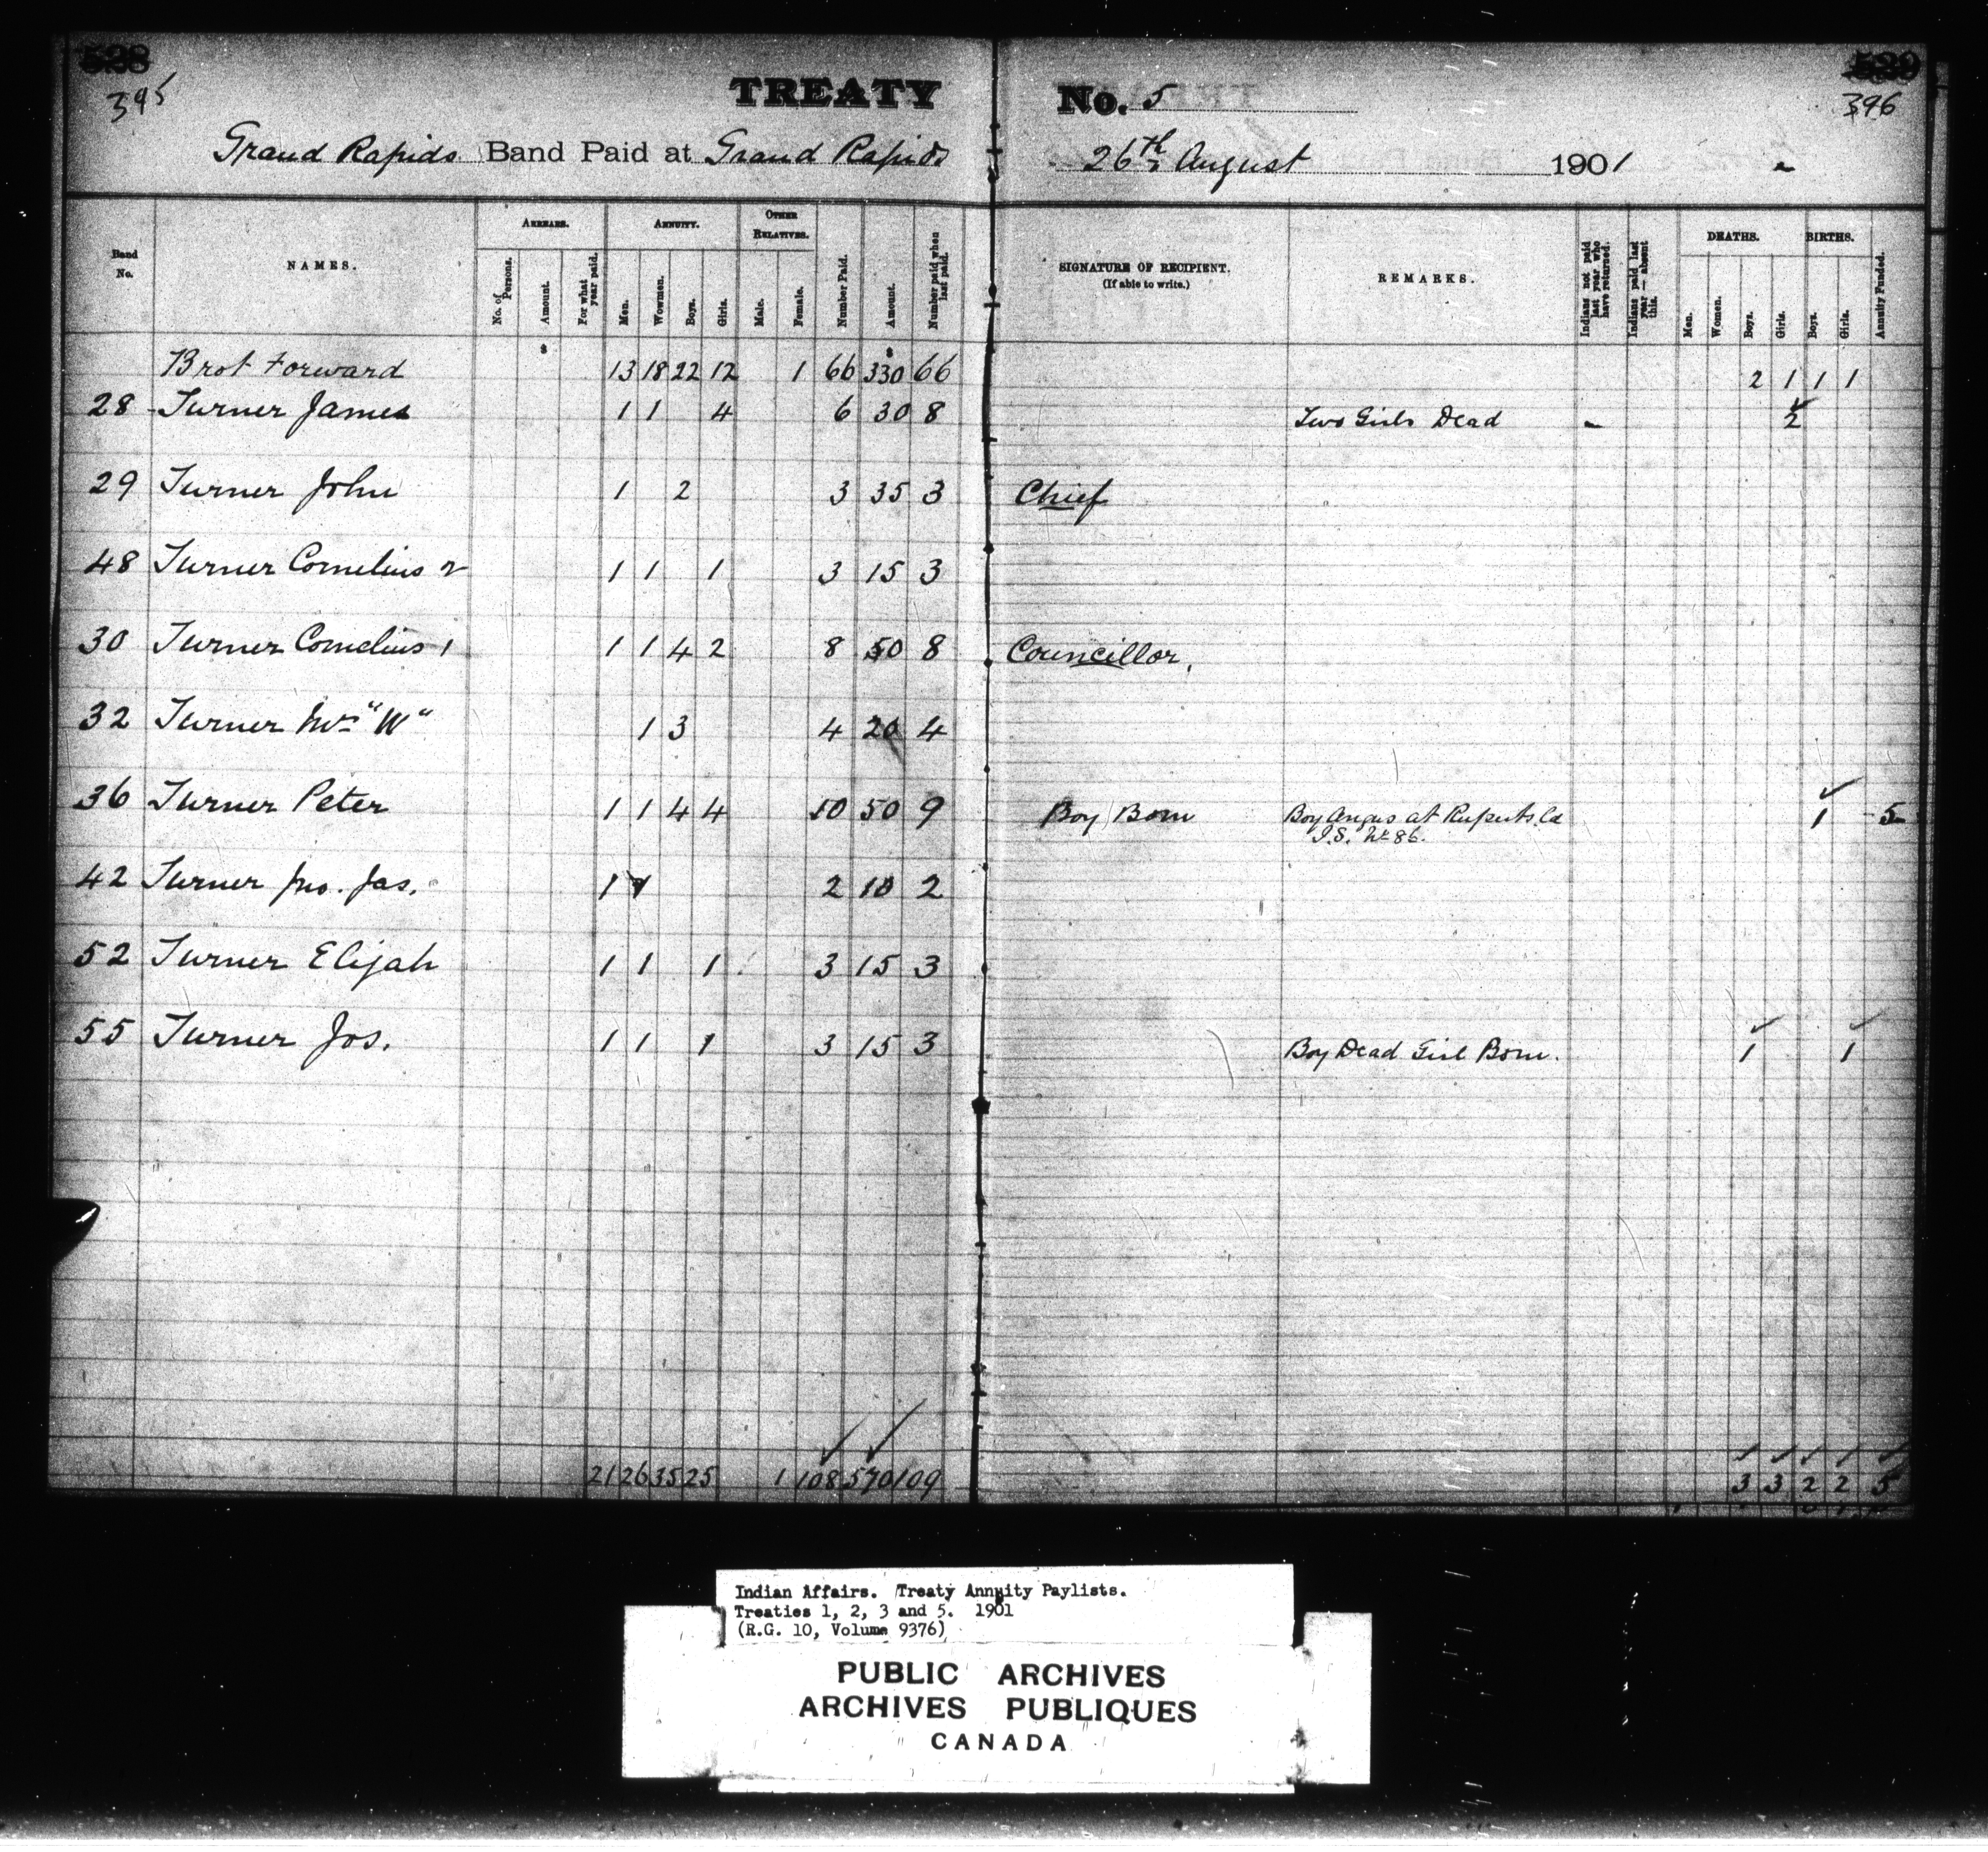 528
529
395
396
TREATY No. 5
Grand Rapids Band Paid at Grand Rapids 26th August 1901
Band No.
NAMES.
ARREARS.
No. of Persons.
Amount.
For what year paid.
ANNUITY.
Men.
Wowmen.
Boys.
Girls.
OTHER RELATIVES.
Male.
Female.
Number Paid.
Amount.
Number paid when last paid.
SIGNATURE OF RECIPIENT.
(If able to write.)
REMARKS.
Indians not paid last year who have returned.
Indians paid last year — absent this.
DEATHS.
Men.
Women.
Boys.
Girls.
BIRTHS.
Boys.
Girls.
Annuity Funded.
$ $
Brot Forward 13 18 22 12 1 66 330 66 2 1 1 1
28 Turner James 1 1 4 6 30 8 Two Girls Dead 2
29 Turner John 1 2 3 35 3 Chief
48 Turner Cornelius 2 1 1 1 3 15 3
30 Turner Cornelius 1 1 1 4 2 8 50 8 Councillor.
32 Turner Mrs "W" 1 3 4 20 4
36 Turner Peter 1 1 4 4 10 50 9 Boy Born Boy Angus at Ruperts Id 1 5
I.S. No 86.
42 Turner Jno. Jas. 1 1 2 10 2
52 Turner Elijah 1 1 1 3 15 3
55 Turner Jos. 1 1 1 3 15 3 Boy Dead Girl Born. 1 1
21 26 35 25 1 108 570 109 3 3 2 2 5
Indian Affairs. Treaty Annuity Paylists.
Treaties 1, 2, 3 and 5. 1901
(R.G. 10, Volume 9376)
PUBLIC ARCHIVES
ARCHIVES PUBLIQUES
CANADA